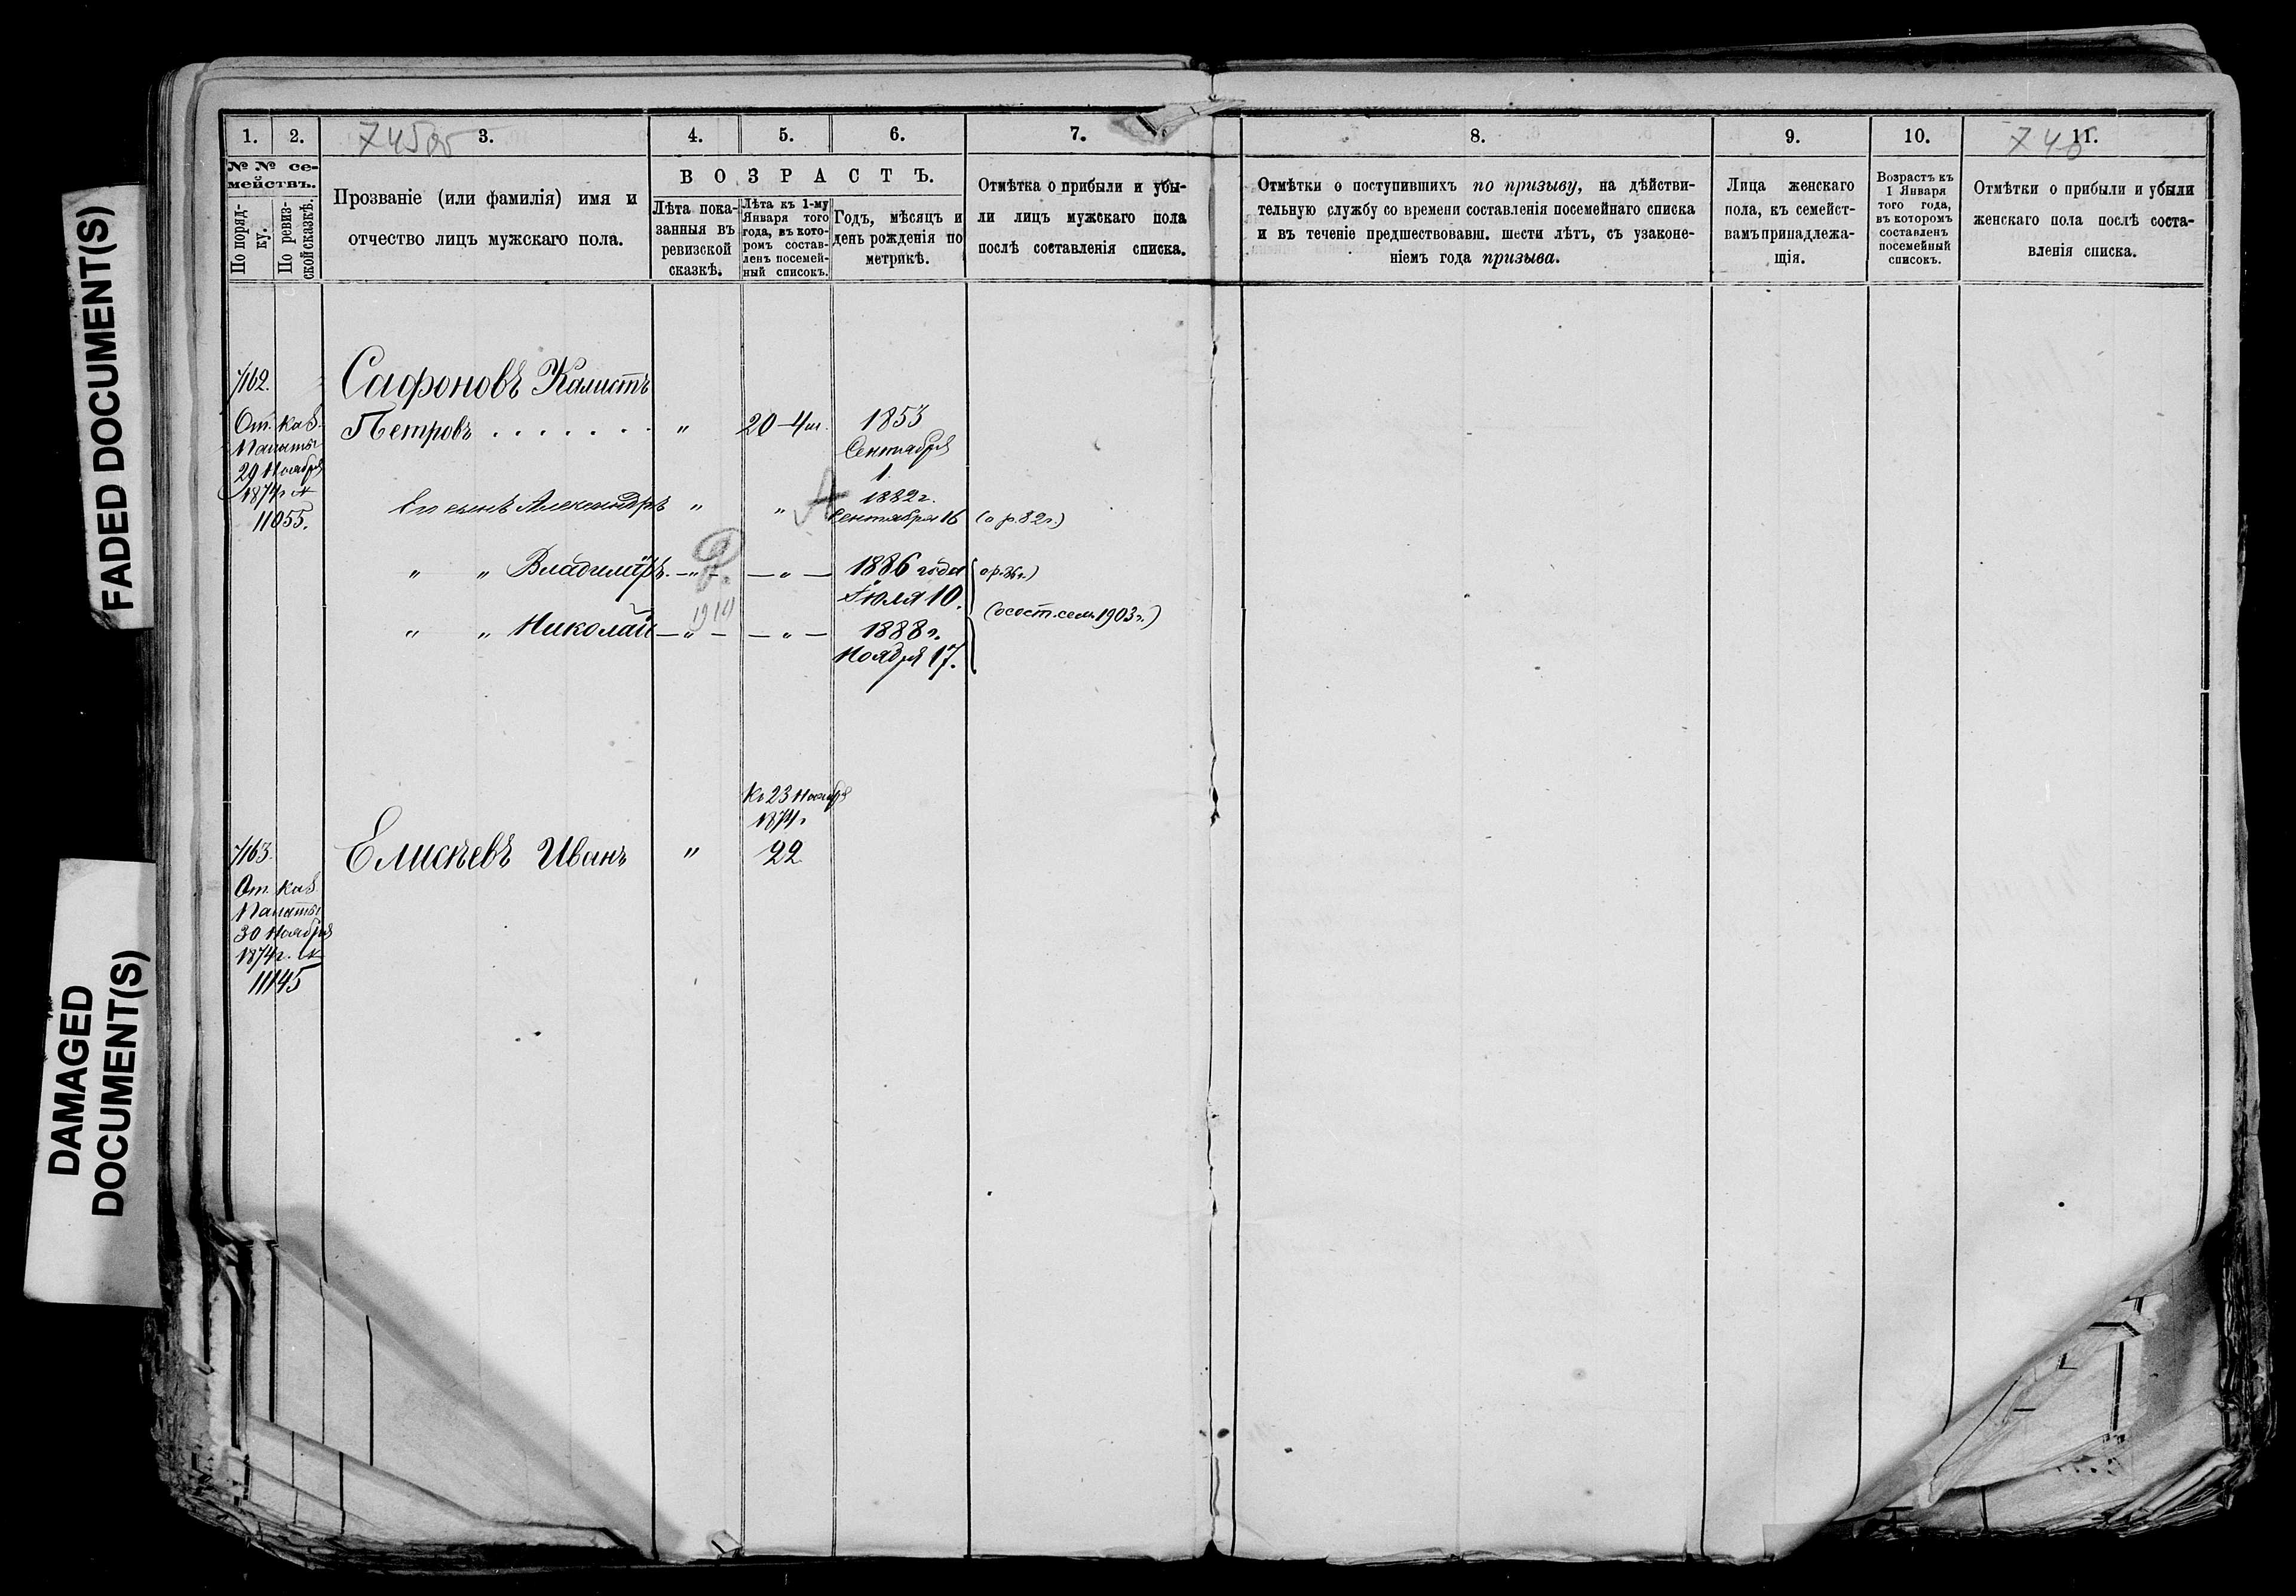 FADED DOCUMENT(S)
DAMAGED
DOCUMENT(S)
1.
2.
3.
4.
5.
6.
7.
8.
9.
10.
11.
745об
745
№ № се-
мействъ.
По поряд-
ку.
По ревиз-
ской сказкѣ.
Прозваніе (или фамилія) имя и
отчество лицъ мужскаго пола.
ВОЗРАСТЪ.
Лѣта пока-
занныя въ
ревизской
сказкѣ.
Лѣта къ 1-му
Января того
года, въ кото-
ромъ состав-
ленъ посемей-
ный списокъ.
Годъ, мѣсяцъ и
день рожденія по
метрикѣ.
Отмѣтка о прибыли и убы-
ли лицъ мужскаго пола
послѣ составленія списка.
Отмѣтки о поступившихъ по призыву, на дѣйстви-
тельную службу со времени составленія посемейнаго списка
и въ теченіе предшествовавш. шести лѣтъ, съ узаконе-
ніемъ года призыва.
Лица женскаго
пола, къ семейст-
вамъ принадлежа-
щія.
Возрастъ къ
1 Января
того года,
въ которомъ
составленъ
посемейный
списокъ.
Отмѣтки о прибыли и убыли
женскаго пола послѣ соста-
вленія списка.
7162. Сафоновъ Калистъ
Петровъ . . . . . . . " 20-4м. 1853
Сентября
1.
От. каз.
Палаты
29 Ноября
1874 г. №
11055.
Его сынъ Александръ " " 1882 г.
Сентября 16 (о р. 82 г.)
" " Владиміръ. — " — — " — 1886 года (о р. 86 г.)
Іюля 10.
1910
(о сост. сем. 1903 г.)
" " Николай — " — — " — 1888 г.
Ноября 17.
Къ 23 Ноября
1874 г.
7163. Елисѣевъ Иванъ " 22
От. каз.
Палаты
30 Ноября
1874 г. №
11145